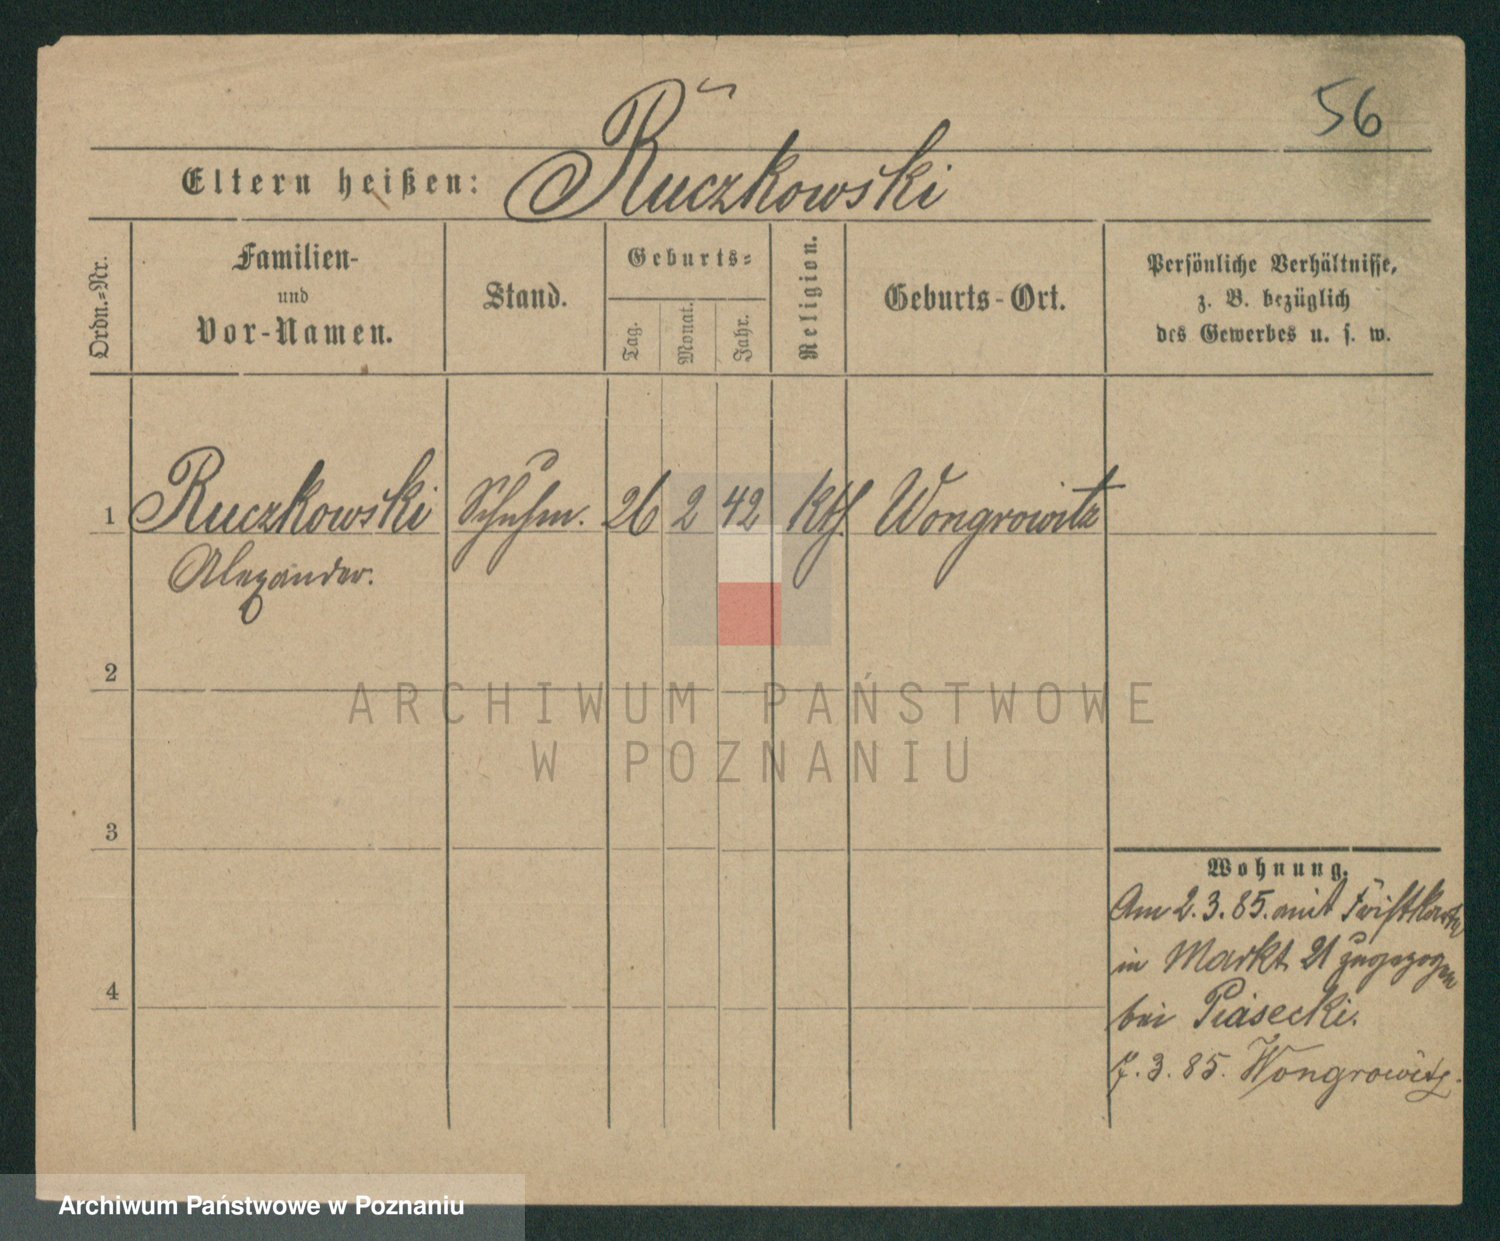 56
Eltern heißen: Ruczkowski
Ordn.=Nr.
Familien-
und
Vor-Namen.
Stand.
Geburts=
Tag.
Monat.
Jahr.
Religion.
Geburts-Ort.
Persönliche Verhältnisse,
z. B. bezüglich
des Gewerbes u. s. w.
1 Ruczkowski Schuhm. 26 2 42 kth. Wongrowitz
Alexander.
2
ARCHIWUM PAŃSTWOWE
W POZNANIU
3
4
Wohnung.
Am 2.3.85. mit
in Markt 21 zugezogen
bei Piasecki.
7.3.85. Wongrowitz.
Archiwum Państwowe w Poznaniu